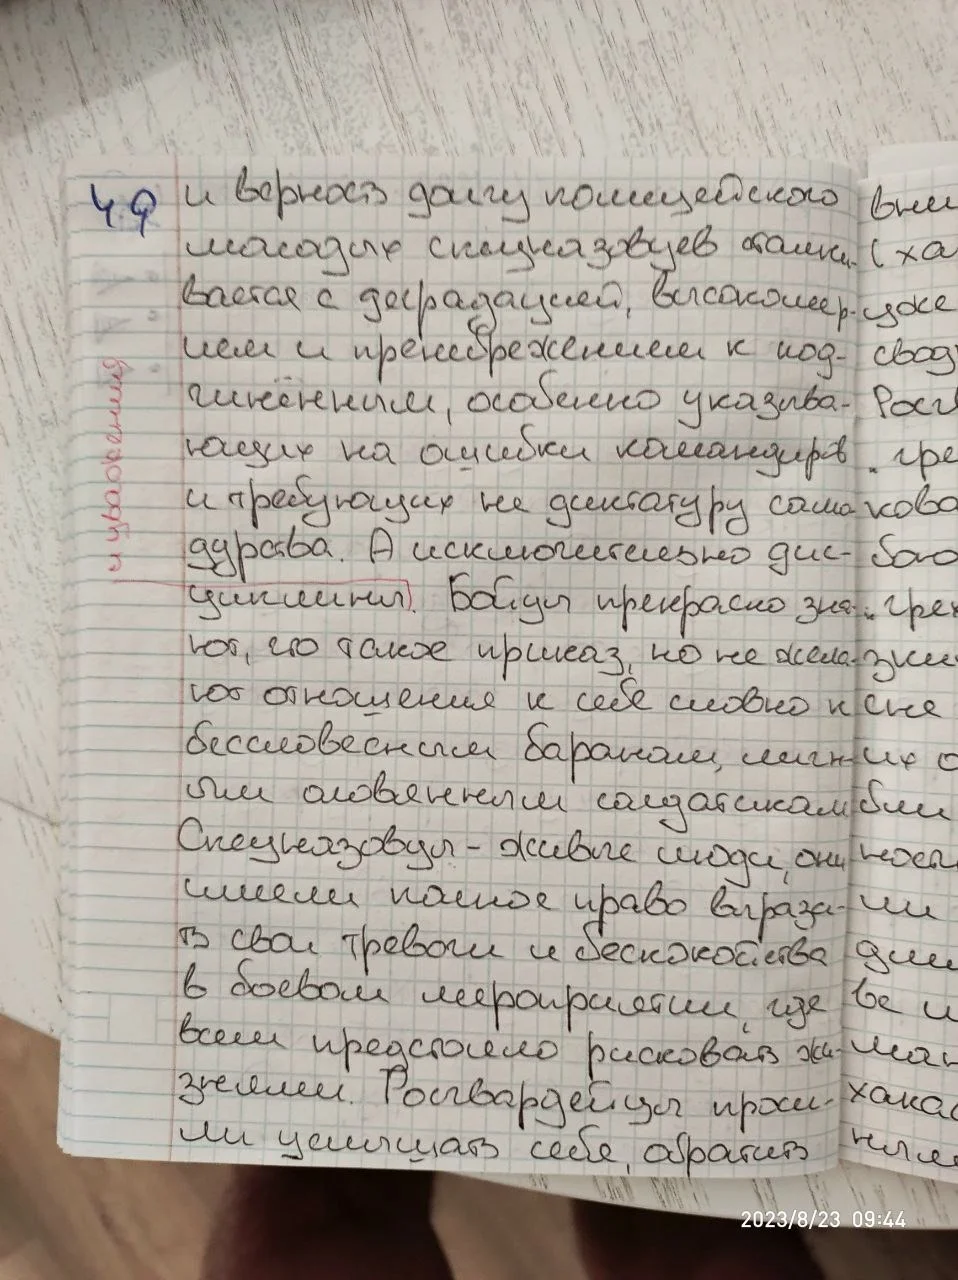 49
и верность долгу полицейского
молодых спецназовцев сталки-
вается с деградацией, высокомер-
ием и пренебрежением к под-
чинённым, особенно указыва-
ющих на ошибки командиров
и требующих не диктатуру само
дурства. А исключительно дис-
циплины. Бойцы прекрасно зна-
ют, что такое приказ, но не жела-
ют отношения к себе словно к
бессловесным баранам, 
ым оловянным солдатикам
Спецназовцы - живые люди, они
имели полное право выража-
ть свои тревоги и бескокойства
в боевом мероприятии, где
всем предстояло рисковать жи-
знями. Росгвардейцы проси-
ли услышать себя, обратить
и уважения
вни
(ха
уже
свод
Росг
гре
кова
бого
грех
зки
сне
их о
бли
ност
ли
дли
ве и
ман
хакас
2023/8/23 09:44